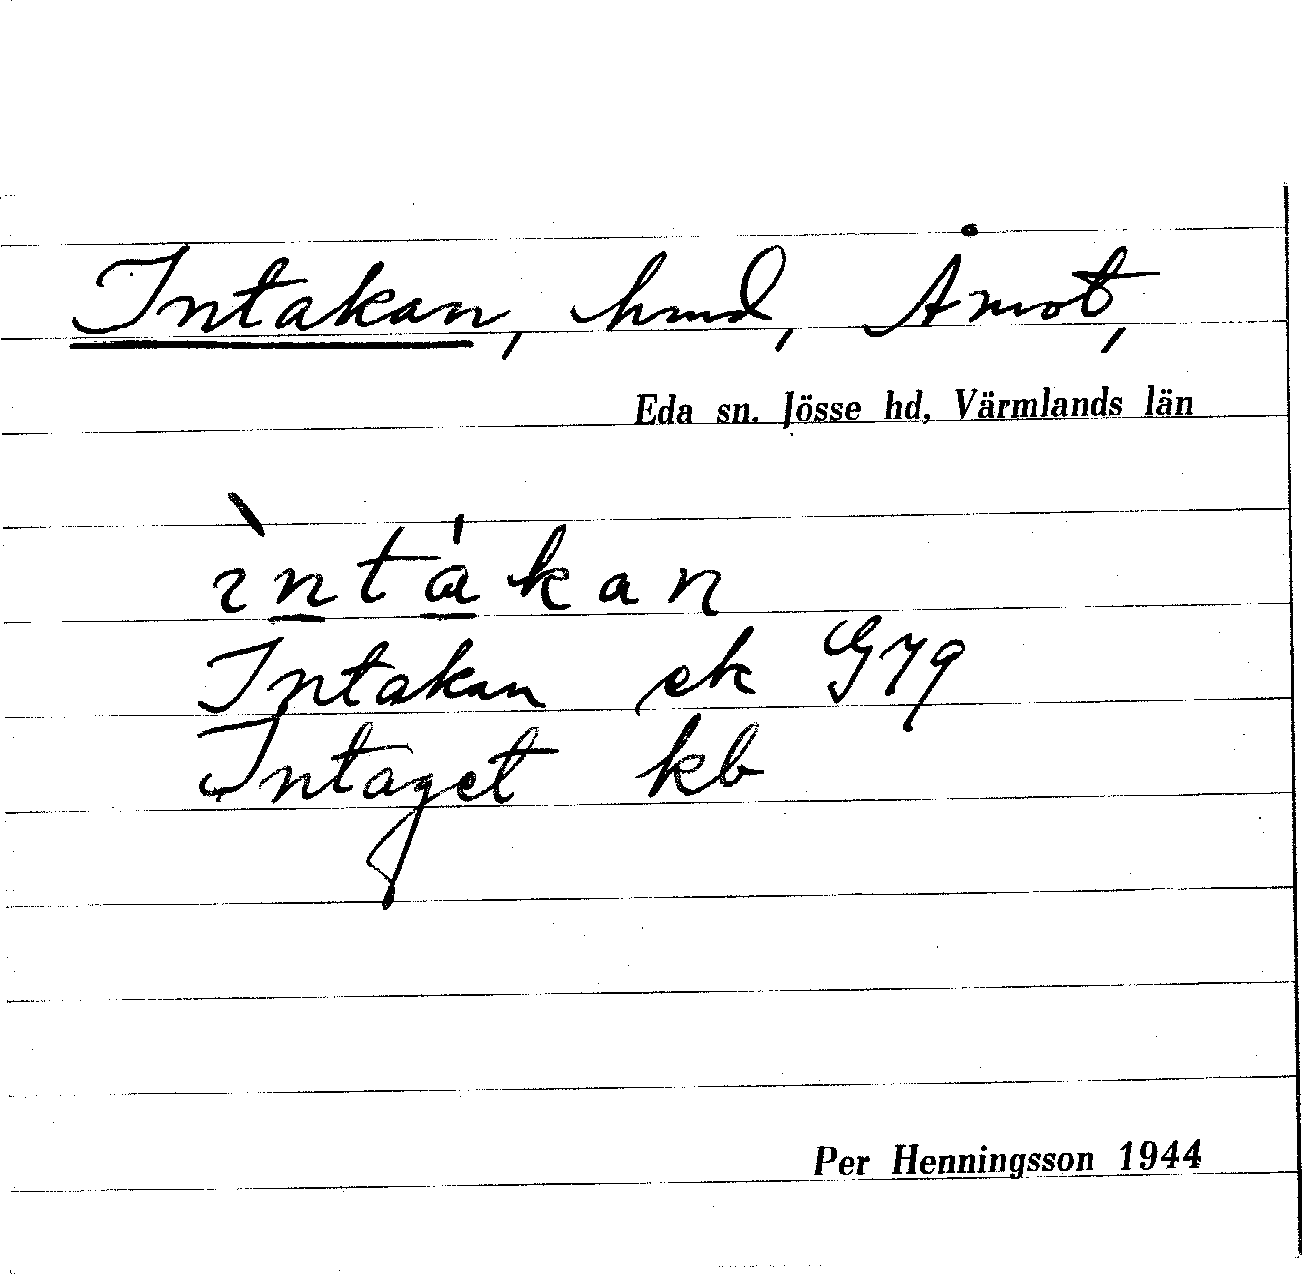 Intakan, hmd, Åmot,
Eda sn. Jösse hd, Värmlands län
ìntákan
Intakan ek G79
Intaget kb
Per Henningsson 1944